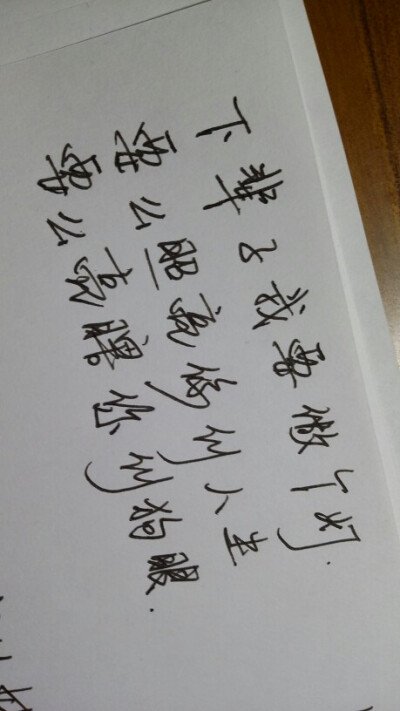 下辈子我要做个灯.
要么照亮你们人生
要么亮瞎你们狗眼.